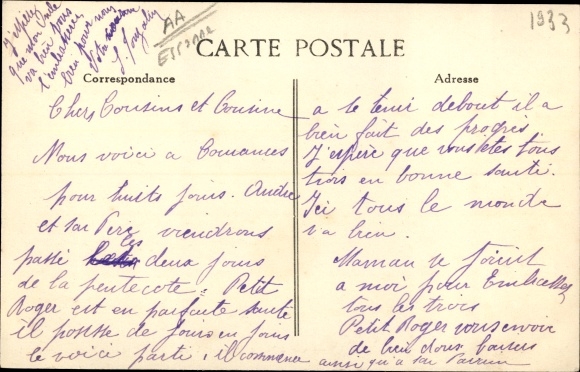 J'espère
que mon Oncle
va bien vous
l'embrasserez
bien pour nous
Votre
AA
1933
CARTE POSTALE
Correspondance
Adresse
Chers Cousins et Cousine
Nous voici a
pour huits jours. André
et son Père viendrons
passé les deux jours
de la pentecote. Petit
Roger est en parfaite santé
il pousse de jours en jours
le voici parti, il commence
a se tenir debout il a
bien fait des progrès
J'espère que vous etes tous
trois en bonne santé.
Ici tous le monde
va bien.
Maman se joint
a moi pour Embrasser
tous les trois
Petit Roger vous envoie
de bien doux baisers
ainsi qu'a son Parrain